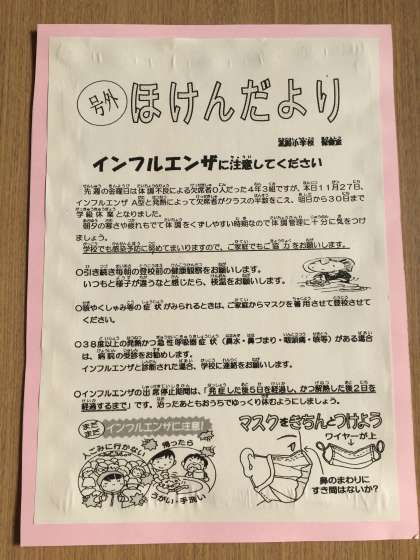 号外
ほけんだより
インフルエンザに注意してください
先週の金曜日は体調不良による欠席者0人だった4年3組ですが、本日11月27日、
インフルエンザA型と発熱によって欠席者がクラスの半数をこえ、明日から30日まで
学級休業となりました。
朝夕の寒さや疲れもでて体調をくずしやすい時期なので体調管理に十分に気をつけ
ましょう。
学校でも感染予防に努めてまいりますので、ご家庭でもご協力をお願いします。
〇引き続き毎朝の登校前の健康観察をお願いします。
いつもと様子が違うなと感じたら、検温をお願いします。
〇咳やくしゃみ等の症状がみられるときは、ご家庭からマスクを着用させて登校させて
ください。
〇38度以上の発熱かつ急性呼吸器症状(鼻水・鼻づまり・咽頭痛・咳等)がある場合
は、病院の受診をお勧めします。
インフルエンザと診断された場合、学校に連絡をお願いします。
〇インフルエンザの出席停止期間は、「発症した後5日を経過し、かつ解熱した後2日を
経過するまで」です。治ったあともおうちでゆっくり休むようにしましょう。
まだまだ
インフルエンザに注意!
人ごみに行かない
帰ったら
うがい・手洗い
マスクをきちんとつけよう
ワイヤーが上
鼻のまわりに
すき間はないか?